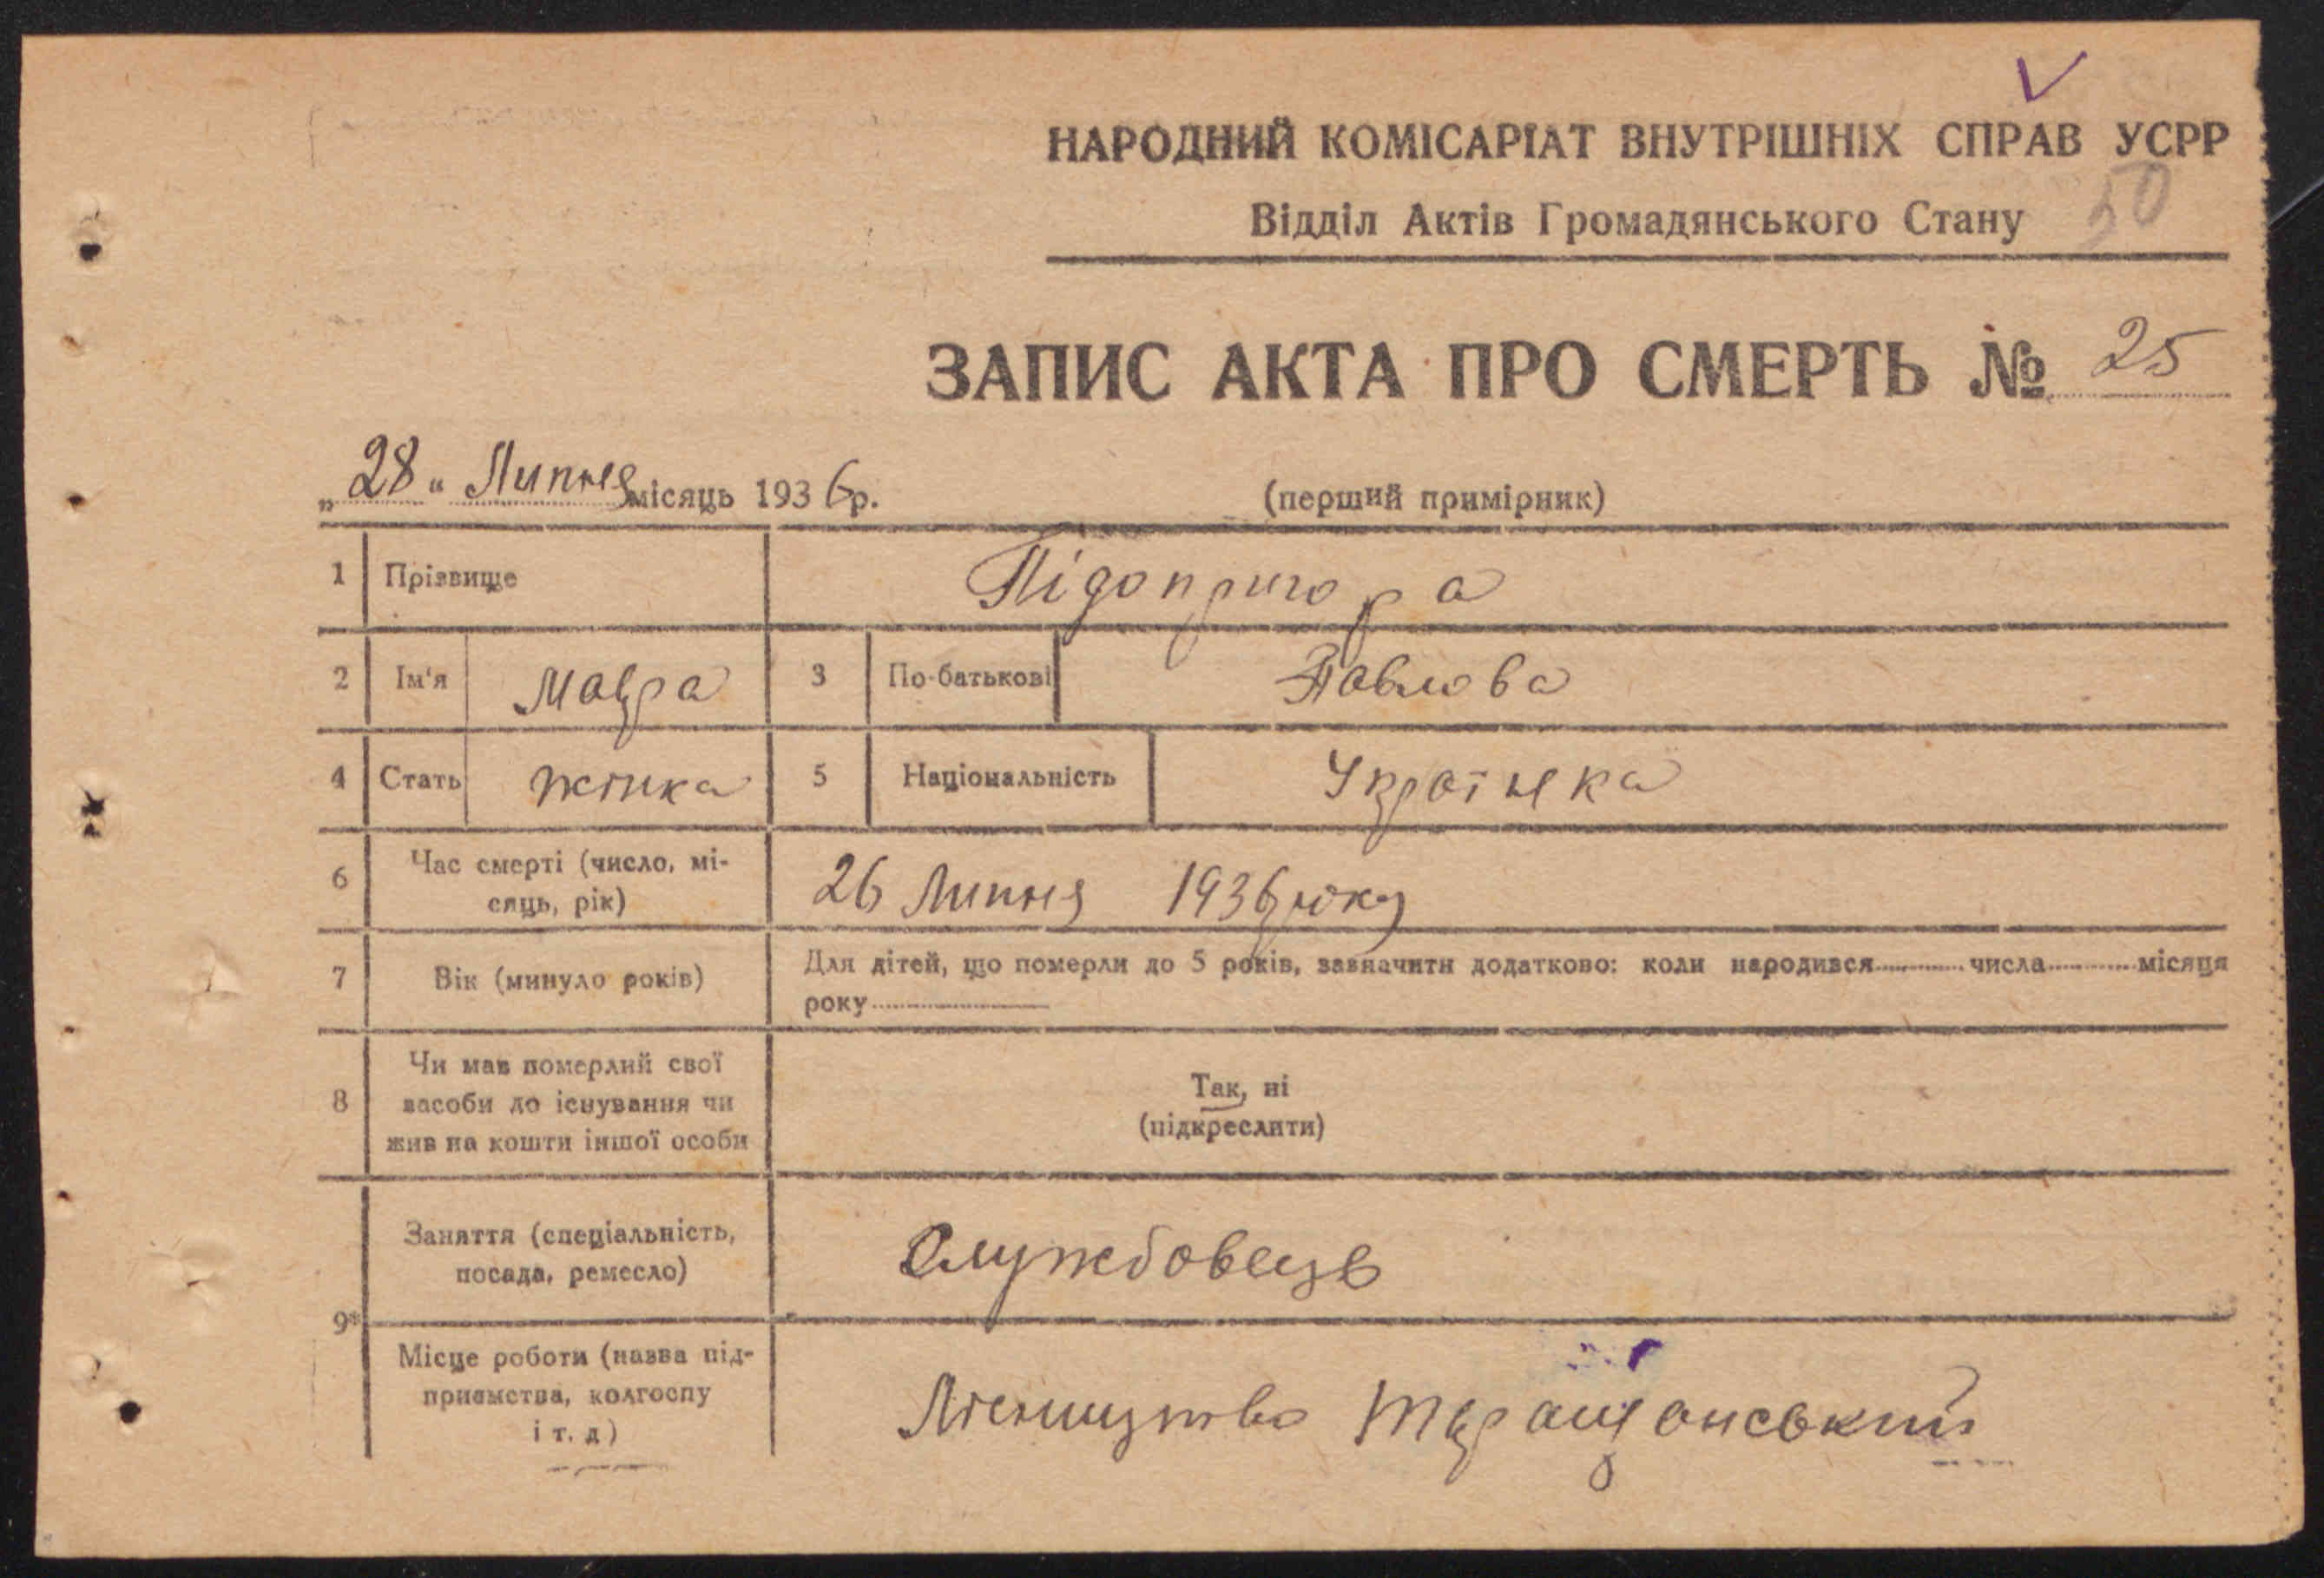 НАРОДНИЙ КОМІСАРІАТ ВНУТРІШНІХ СПРАВ УСРР
50
Відділ Актів Громадянського Стану
ЗАПИС АКТА ПРО СМЕРТЬ № 25
„28“ Липня місяць 1936 р.
(перший примірник)
1 Прізвище Підопригора
2 Ім'я Мавра 3 По-батькові Павлова
4 Стать жінка 5 Національність Українка
6 Час смерті (число, мі-
сяць, рік) 26 Липня 1936 року
7 Вік (минуло років) Для дітей, що померли до 5 років, зазначити додатково: коли народився числа місяця
року
8 Чи мав померлий свої
засоби до існування чи
жив на кошти іншої особи
Так, ні
(підкреслити)
9* Заняття (спеціальність,
посада, ремесло) Службовець
Місце роботи (назва під-
приємства, колгоспу
і т. д) Лісництво Таращанський